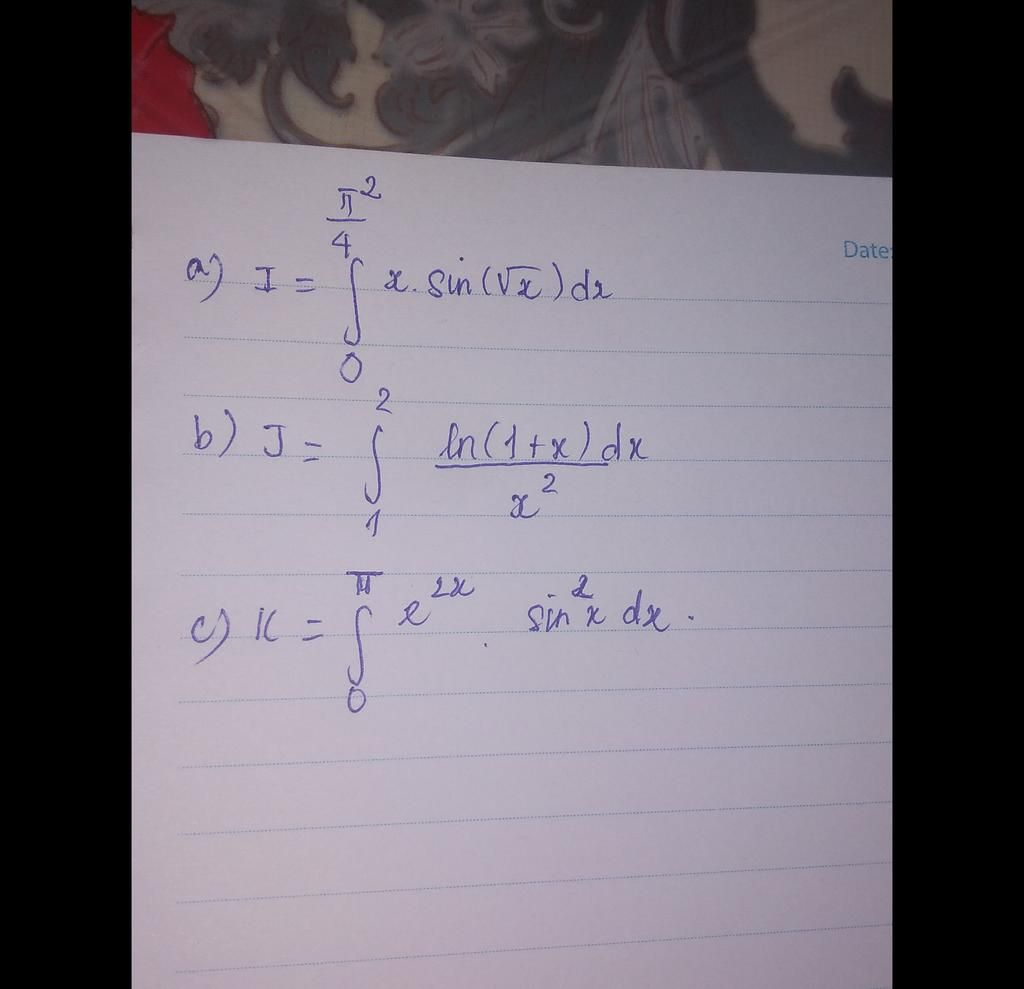 Date:
a) I = ∫₀^(π²/4) x. sin(√x) dx
b) J = ∫₁² ln(1+x) dx / x²
c) K = ∫₀^π e^(2x) . sin²x dx.